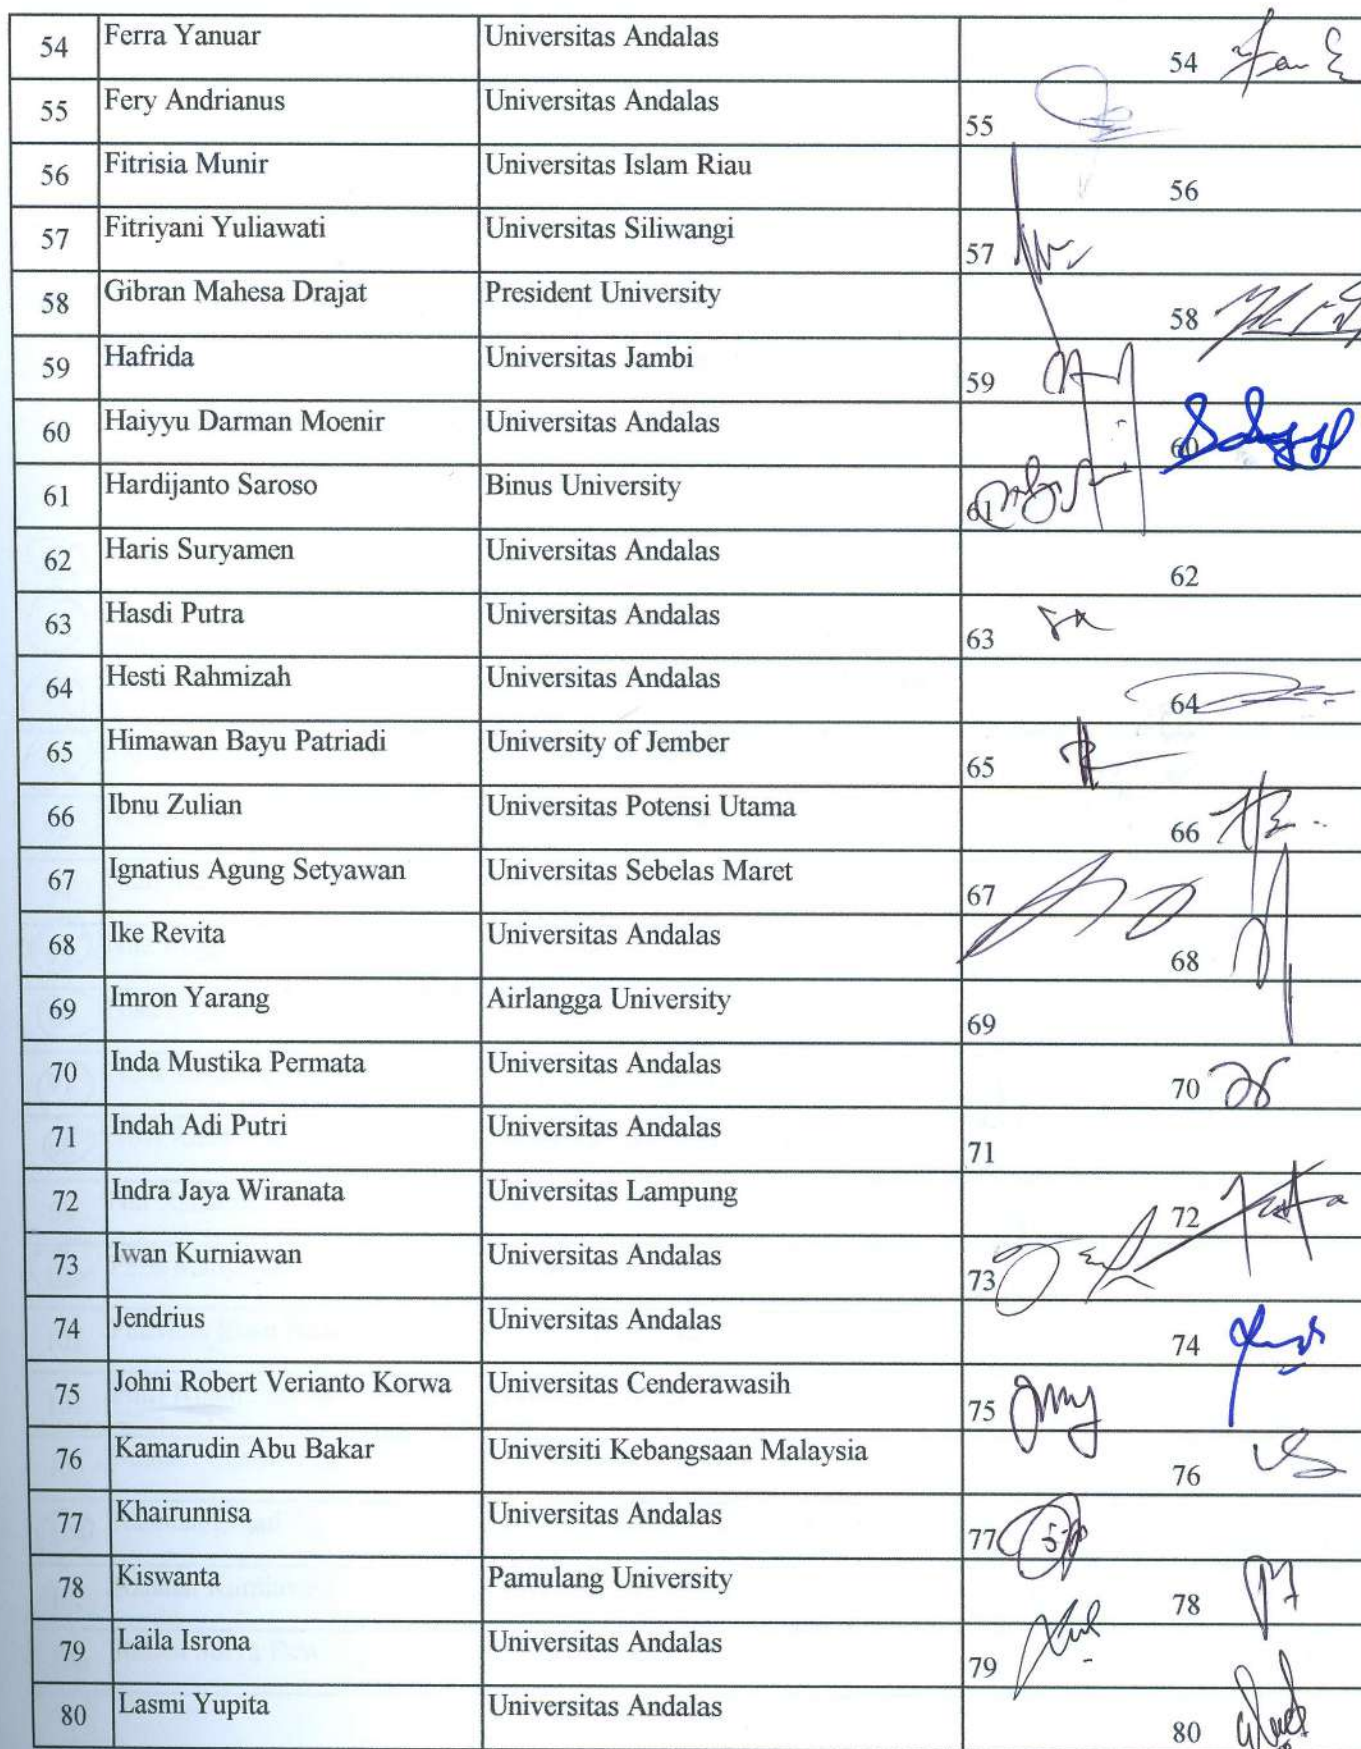 54 Ferra Yanuar Universitas Andalas 54
55 Fery Andrianus Universitas Andalas 55
56 Fitrisia Munir Universitas Islam Riau 56
57 Fitriyani Yuliawati Universitas Siliwangi 57
58 Gibran Mahesa Drajat President University 58
59 Hafrida Universitas Jambi 59
60 Haiyyu Darman Moenir Universitas Andalas 60
61 Hardijanto Saroso Binus University 61
62 Haris Suryamen Universitas Andalas 62
63 Hasdi Putra Universitas Andalas 63
64 Hesti Rahmizah Universitas Andalas 64
65 Himawan Bayu Patriadi University of Jember 65
66 Ibnu Zulian Universitas Potensi Utama 66
67 Ignatius Agung Setyawan Universitas Sebelas Maret 67
68 Ike Revita Universitas Andalas 68
69 Imron Yarang Airlangga University 69
70 Inda Mustika Permata Universitas Andalas 70
71 Indah Adi Putri Universitas Andalas 71
72 Indra Jaya Wiranata Universitas Lampung 72
73 Iwan Kurniawan Universitas Andalas 73
74 Jendrius Universitas Andalas 74
75 Johni Robert Verianto Korwa Universitas Cenderawasih 75
76 Kamarudin Abu Bakar Universiti Kebangsaan Malaysia 76
77 Khairunnisa Universitas Andalas 77
78 Kiswanta Pamulang University 78
79 Laila Isrona Universitas Andalas 79
80 Lasmi Yupita Universitas Andalas 80